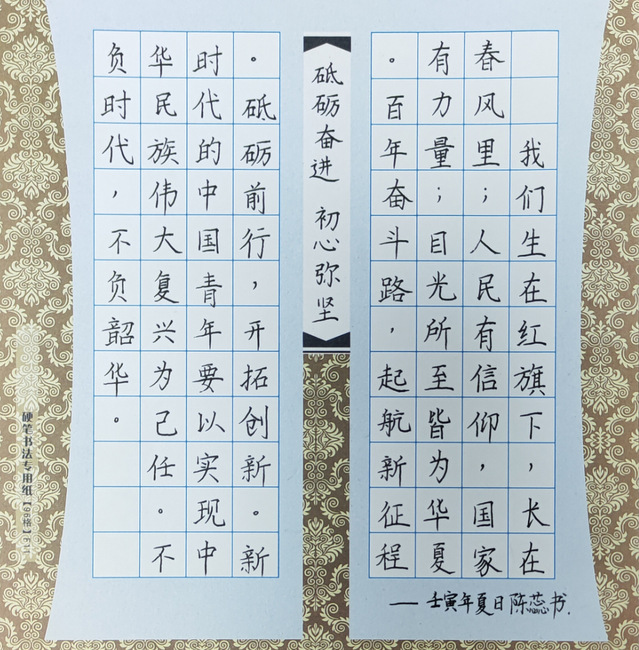 我们生在红旗下，长在
春风里；人民有信仰，国家
有力量；目光所至皆为华夏
。百年奋斗路，起航新征程
砥砺奋进 初心弥坚
。砥砺前行，开拓创新。新
时代的中国青年要以实现中
华民族伟大复兴为己任。不
负时代，不负韶华。
——壬寅年夏日陈蕊书.
硬笔书法专用纸